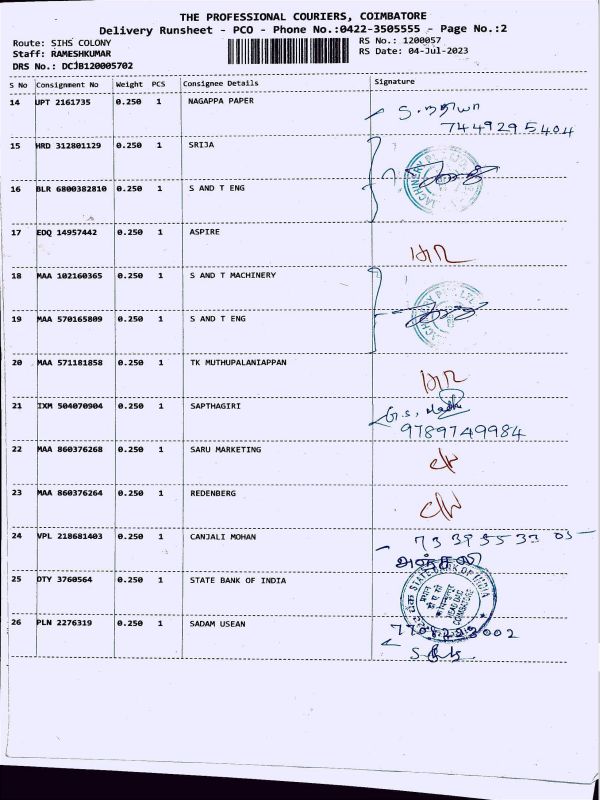 THE PROFESSIONAL COURIERS, COIMBATORE
Delivery Runsheet - PCO - Phone No.:0422-3505555 - Page No.:2
Route: SIHS COLONY RS No.: 1200057
Staff: RAMESHKUMAR RS Date: 04-Jul-2023
DRS No.: DCJB120005702
S No Consignment No Weight PCS Consignee Details Signature
14 UPT 2161735 0.250 1 NAGAPPA PAPER
7449295404
15 HRD 312801129 0.250 1 SRIJA
16 BLR 6800382810 0.250 1 S AND T ENG
17 EDQ 14957442 0.250 1 ASPIRE
18 MAA 102160365 0.250 1 S AND T MACHINERY
19 MAA 570165809 0.250 1 S AND T ENG
20 MAA 571181858 0.250 1 TK MUTHUPALANIAPPAN
21 IXM 504070904 0.250 1 SAPTHAGIRI
9789749984
22 MAA 860376268 0.250 1 SARU MARKETING
23 MAA 860376264 0.250 1 REDENBERG
24 VPL 218681403 0.250 1 CANJALI MOHAN
அஞ்சலி
25 OTY 3760564 0.250 1 STATE BANK OF INDIA STATE BANK OF INDIA
COIMBATORE
26 PLN 2276319 0.250 1 SADAM USEAN